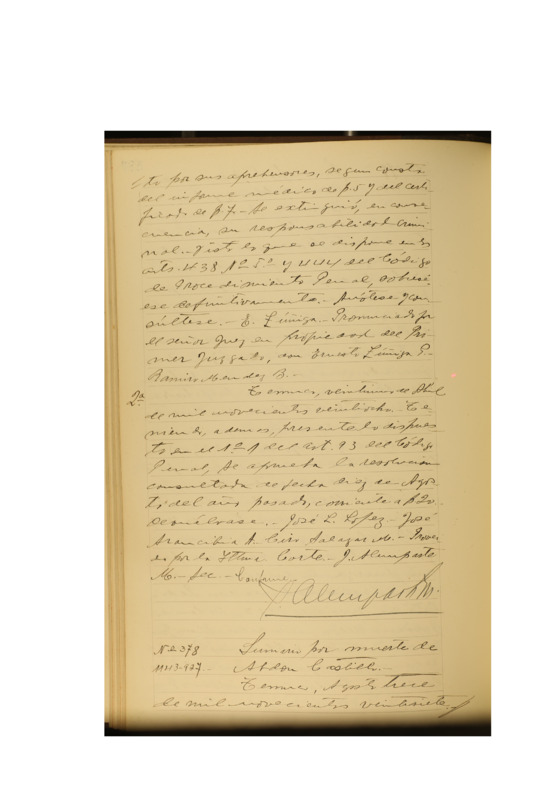 to por sus aprehensores, segun consta
del informe médico de f. 5 y del certi-
ficado de f. 7. Se extinguió, en conse
cuencia, su responsabilidad crimi
nal. Visto lo que se dispone en los
arts. 438 Nº 5º y 444 del Código
de Procedimiento Penal, sobresé-
ese definitivamente. Anótese y con
súltese.- E. Zúñiga.- Pronunciado por
el señor Juez en propiedad del Pri-
mer Juzgado, don Ernesto Zúñiga G.-
Ramiro Mendez B.-
2a. Temuco, veintiuno de Abril
de mil novecientos veintiocho. Te-
niendo, ademas, presente lo dispues
to en el Nº 1 del art. 93 del Código
Penal, se aprueba la resolucion
consultada de fecha diez de Agos
to del año pasado, corriente a f. 20.
Devuélvase.- José L. Lopez.- José
Arancibia A. Ciro Salazar M.- Provei
do por la Iltma. Corte.- J. Alempart
M.- Sec.- Conforme.
Alempart M.
Nº 2378 Sumario por muerte de
Abdon Castillo.-
Temuco, Agosto trece
de mil novecientos veintisiete.